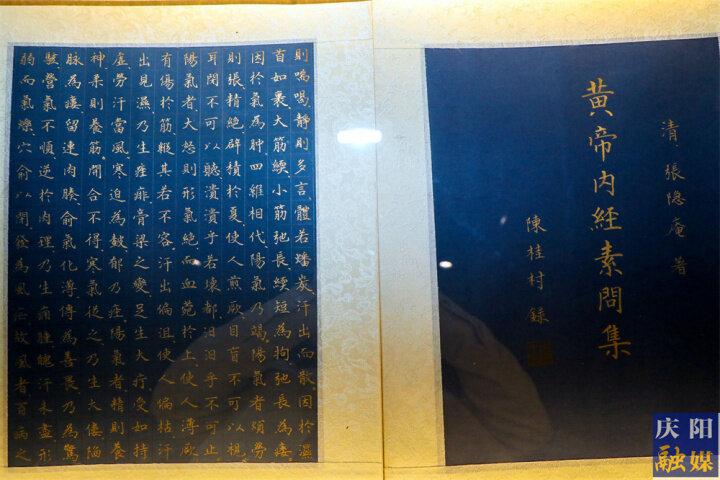 清、張隐庵 著
黄帝内經素問集
陳桂村録
則喘喝,静則多言,體若燔炭,汗出而散,因於濕
首如裹,大筋緛,小筋弛長,緛短為拘,弛長為痿。
因於氣為肿,四維相代,陽氣乃竭,陽氣者煩勞
則張,精絶,辟積於夏,使人煎厥,目盲不可以視,
耳閉不可以聽,潰潰乎若壊都,汨汨乎不可止
陽氣者大怒則形氣絶,而血菀於上,使人薄厥
有傷於筋,縱其若不容,汗出偏沮,使人偏枯,汗
出見濕,乃生痤疿,膏粱之變,足生大疔,受如持
虚,勞汗當風,寒迫為皶,郁乃痤,陽氣者精則養
神,柔則養筋,開合不得,寒氣從之,乃生大僂,陷
脉為瘻,留連肉腠,俞氣化薄,傳為善畏,乃為驚
駭,營氣不順,逆於肉理,乃生癰腫,魄汗未盡,形
弱而氣爍,穴俞以閉,發為風瘧,故風者,百病之
庆阳
融媒